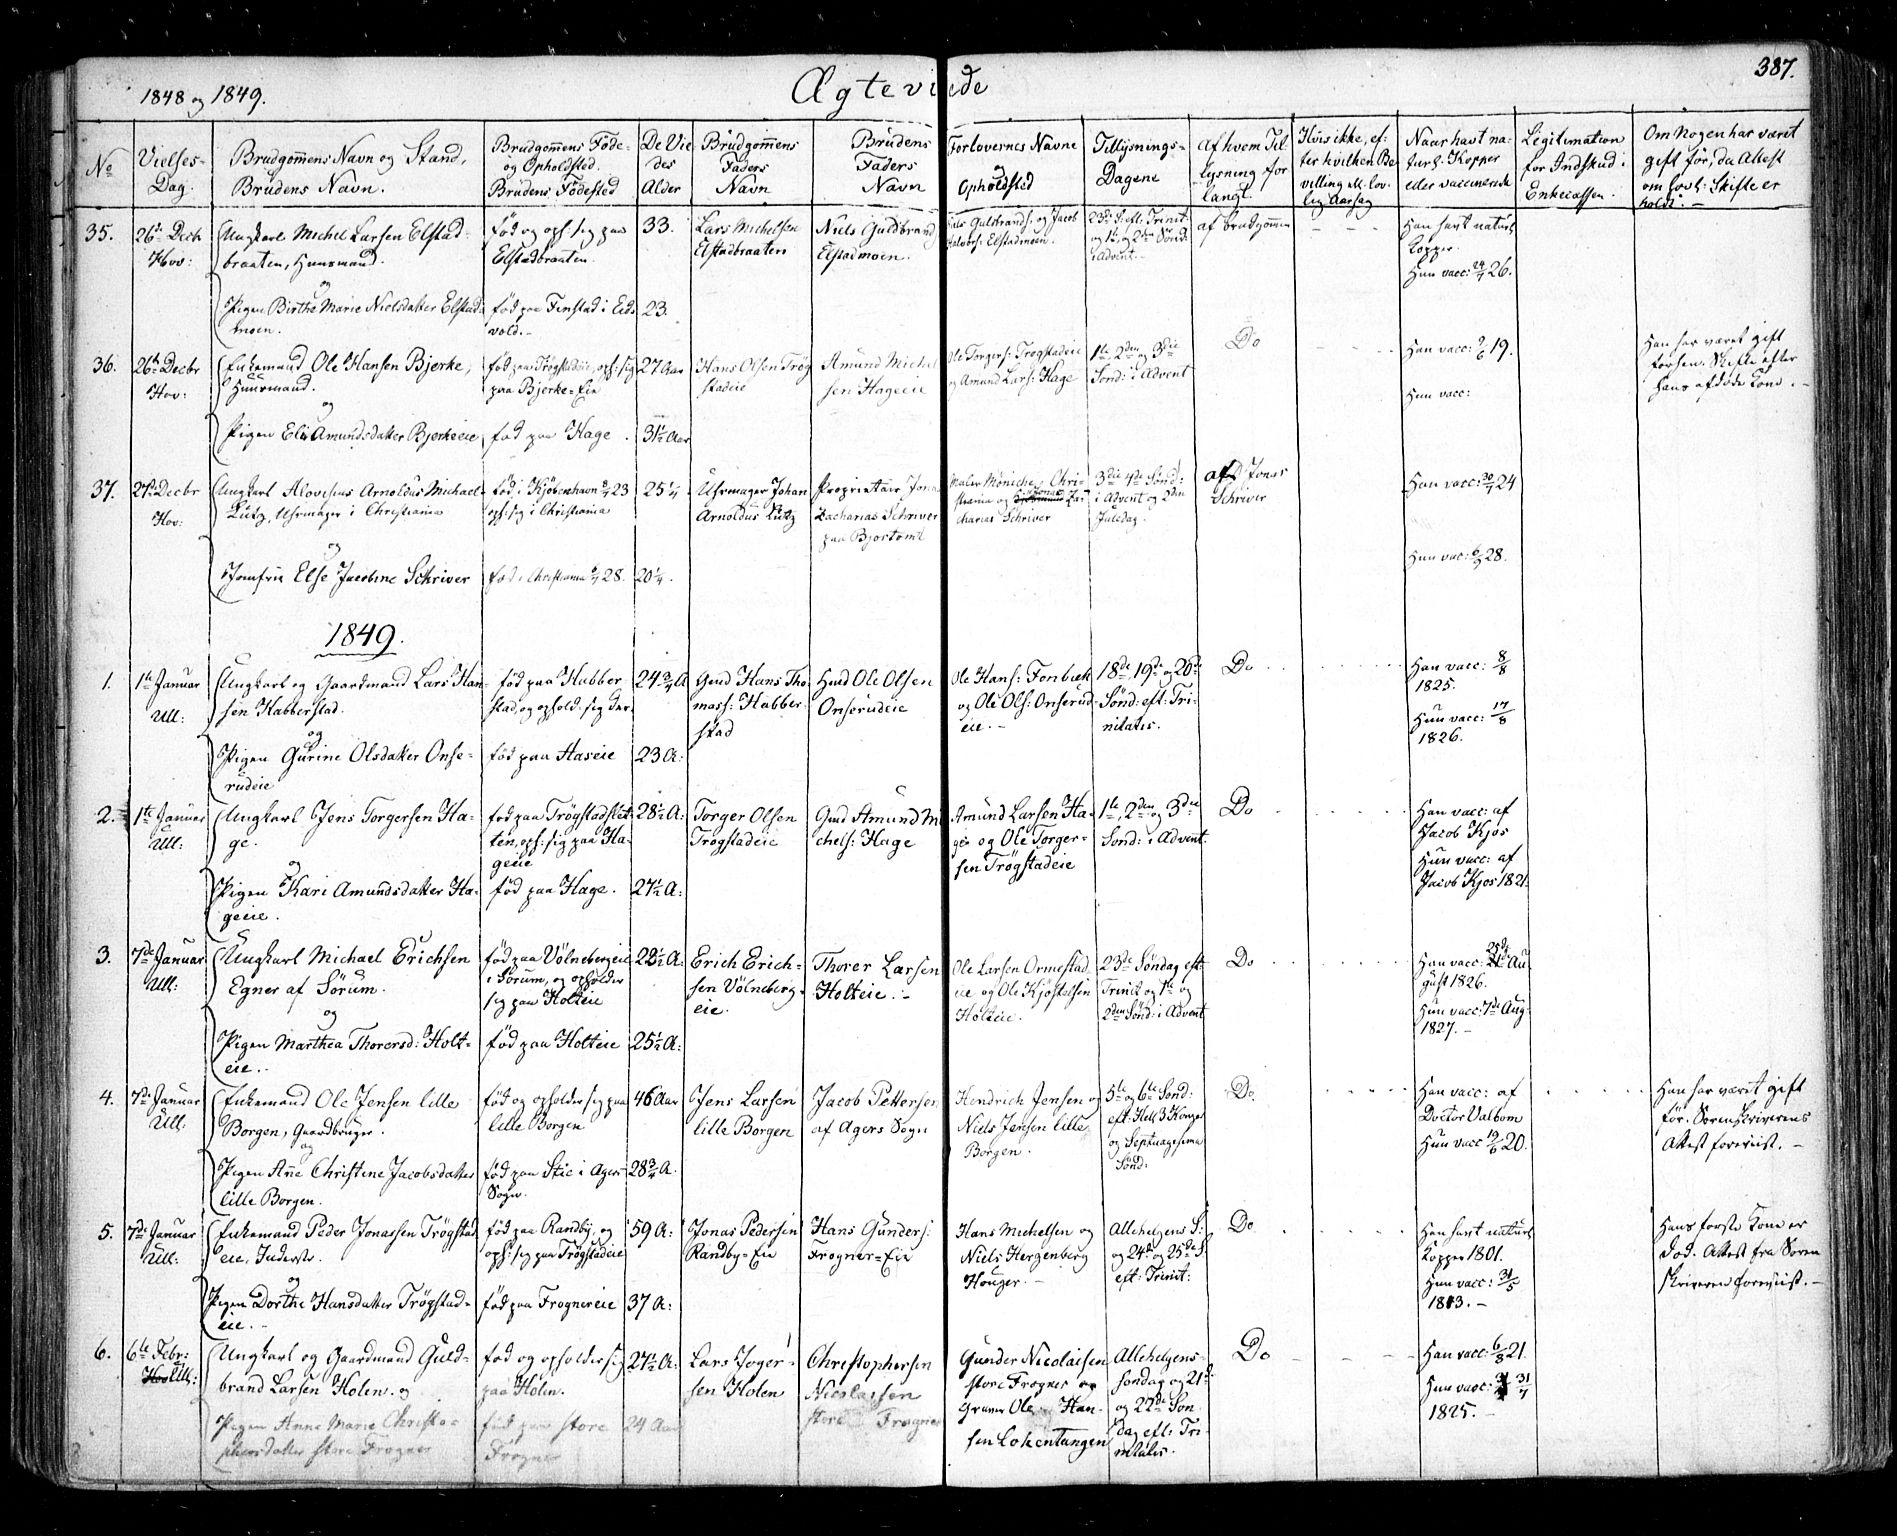 1848 og 1849.
Ægteviede
387.
No
Vielses-
Dag.
Brudgom̄ens Navn og Stand,
Brudens Navn.
Brudgom̄ens Føde-
og Opholdsted.
Brudens Fødested
De Vie
des
Alder
Brudgom̄ens
Faders
Navn
Brudens
Faders
Navn
Forlovernes Navne
og
Opholdsted
Tillysnings-
Dagene
Af hvem Til-
lysning for
langt.
Hvis ikke, ef-
ter hvilken Be
villing ell. lov-
lig Aarsag
Naar havt na-
turl. Kopper
eller vaccinerede
Legitimation
for Indskud i
Enkecassen.
Om Nogen har været
gift før, da Attest
om lovl: Skifte er
holdt. -
35.
26de Decbr
Hov:
Ungkarl Michel Larsen Elstad-
braaten, Huusmand.
og
Pigen Birthe Marie Nielsdatter Elstad-
moen.
fød og oph. sig paa
Elstadbraaten.
fød paa Finstad i Eids
vold. -
33.
23.
Lars Michelsen
Elstadbraaten
Niels Guldbrand
Elstadmoen.
Niels Guldbrands: og Jacob
Halvors: Elstadmoen.
23de S. eft. Trinit.
og 1ste og 2den Sönd.
i Advent. -
af Brudgom̄en
Han havt naturl.
Kopper.
Hun vacc: 24/7 26.
36.
26de Decbr
Hov:
Enkemand Ole Hansen Bjerke,
Huusmand.
og
Pigen Eli Amundsdatter Bjerkeeie
fød paa Trögstadeie, oph: sig
paa Bjerke-Eie
fød paa Hage.
27 Aar
31½ Aar
Hans Olsen Trög
stadeie
Amund Michel
sen Hageeie
Ole Torgers: Trøgstadeie
og Amund Lars: Hage
1ste, 2den og 3die
Sönd: i Advent
Do
Han vacc: 9/6 19.
Hun vacc:
Han har været gift
forhen. Skifte efter
hans afdøde Kone. -
37.
27de Decbr
Hov:
Ungkarl Alovisius Arnoldus Michael
Lutz, Uhrmager i Christiania
og
Jomfru Else Jacobine Schriver
fød i Kjöbenhavn 8/9 23
oph: sig i Christiania
fød i Christiania 6/9 28.
25¼
20¼.
Uhrmager Johan
Arnoldus Lutz
Proprietair, Jonas
Zacharias Schriver
paa Bjortomt
Maler Möniche, Chri-
stiania og Jonas Za-
charias Schriver
3die 4de Sönd:
i Advent og 2den
Juledag.
af Jonas
Schriver
Han vacc: 30/7 24
Hun vac: 6/9 28.
1849.
1.
1ste Januar
Ull:
Ungkarl og Gaardmand Lars Han-
sen Habberstad.
og
Pigen Gurine Olsdatter Onse-
rudeie
fød paa Habber
stad, og ophold. sig der.
fød paa Haseie
24¾ A
23 A:
Gmd Hans Tho-
mass: Habber-
stad
Hmd Ole Olsen
Onserudeie
Ole Hans: Fonbæk
og Ole Ols: Onserud-
eie. -
18de, 19de og 20de
Sönd: eft: Tri-
nitatis.
Do
Han vacc: 8/8
1825.
Hun vacc: 17/8
1826.
2.
1ste Januar
Ull:
Ungkarl Jens Torgersen Ha-
ge.
og
Pigen Kari Amundsdatter Ha-
geeie.
fød paa Trögstadslet
ten, oph: sig paa Ha-
geeie
fød paa Hage.
28½ A:
27½ A:
Torger Olsen
Trögstadeie
Gmd Amund Mi
chels: Hage
Amund Larsen Ha-
ge og Ole Torger-
sen Trögstadeie
1ste, 2den og 3die
Sönd: i Advent.
Do
Han vacc: af
Jacob Kjos
Hun vacc: af
Jacob Kjos 1821.
3.
7de Januar
Ull:
Ungkarl Michael Erichsen
Egner af Sörum.
og
Pigen Marthea Thorersd: Holt-
eie. -
fød paa Völnebergeie
i Sörum, og opholder
sig paa Holteie
fød paa Holteie
22½ A:
25½ A:
Erich Erich-
sen Völneberg-
eie.
Thorer Larsen
Holteie. -
Ole Larsen Ormestad
eie og Ole Kjøstelsen
Holteie.
23de Söndag eft
Trinit og 1ste og
2den Sönd: i Advent
Do
Han vacc: 25de Au-
gust 1826.
Hun vacc: 7de Aug:
1827. -
4.
7de Januar
Ull.
Enkemand Ole Jensen lille
Borgen, Gaardbruger.
og
Pigen An̄e Christine Jacobsdatter
lille Borgen.
fød og opholder sig paa
lille Borgen
fød paa Stie i Agers
Sogn.
46 Aar
28¾ A.
Jens Larsen
lille Borgen
Jacob Pettersen
af Agers Sogn
Hendrich Jensen og
Niels Jensen lille
Borgen.
5te og 6te Sönd:
eft: Hell. 3 Konger
og Septuagesima
Sönd:
Do.
Han vacc: af
Doctor Valbom
Hun vacc 19/6 20.
Han har været gift
før. Sorenskriverens
Attest foreviist. -
5.
7de Januar
Ull:
Enkemand Peder Jonassen Trögstad
eie, Inderst.
og
Pigen Dorthe Hansdatter Trögstad-
eie. -
fød paa Randby, og
oph: sig paa Trögstadeie
fød paa Frognereie
59 A:
37 A:
Jonas Pedersen
Randby-Eie
Hans Gunders:
Frogner-Eie
Hans Michelsen og
Niels Hergenberg
Houger. -
Allehelgens S:
og 24de og 25de S.
eft: Trinit:
Do.
Han havt naturl
Kopper 1801.
Hun vacc: 31/5
1813. -
Hans første Kone er
død. Attest fra Soren
skriveren foreviist. -
6.
6te Febr:
Ull:
Ungkarl og Gaardmand Guld-
brand Larsen Holen. og
Pigen Anne Marie Christo-
phersdatter store Frogner
fød og opholder sig
paa Holen.
fød paa store
Frogner
27½ A:
24 Aar
Lars Joger-
sen Holen
Christophersen
Nicolaisen
store Frogner
Gunder Nicolaisen
store Frogner og
Gramr Ole Han-
sen Lokentangen
Allehelgens-
söndag og 21de
og 22de Sön
dag eft: Tri-
nitatis.
Do
Han vacc: 6/8 21.
Hun vacc: 31/7
1825. -